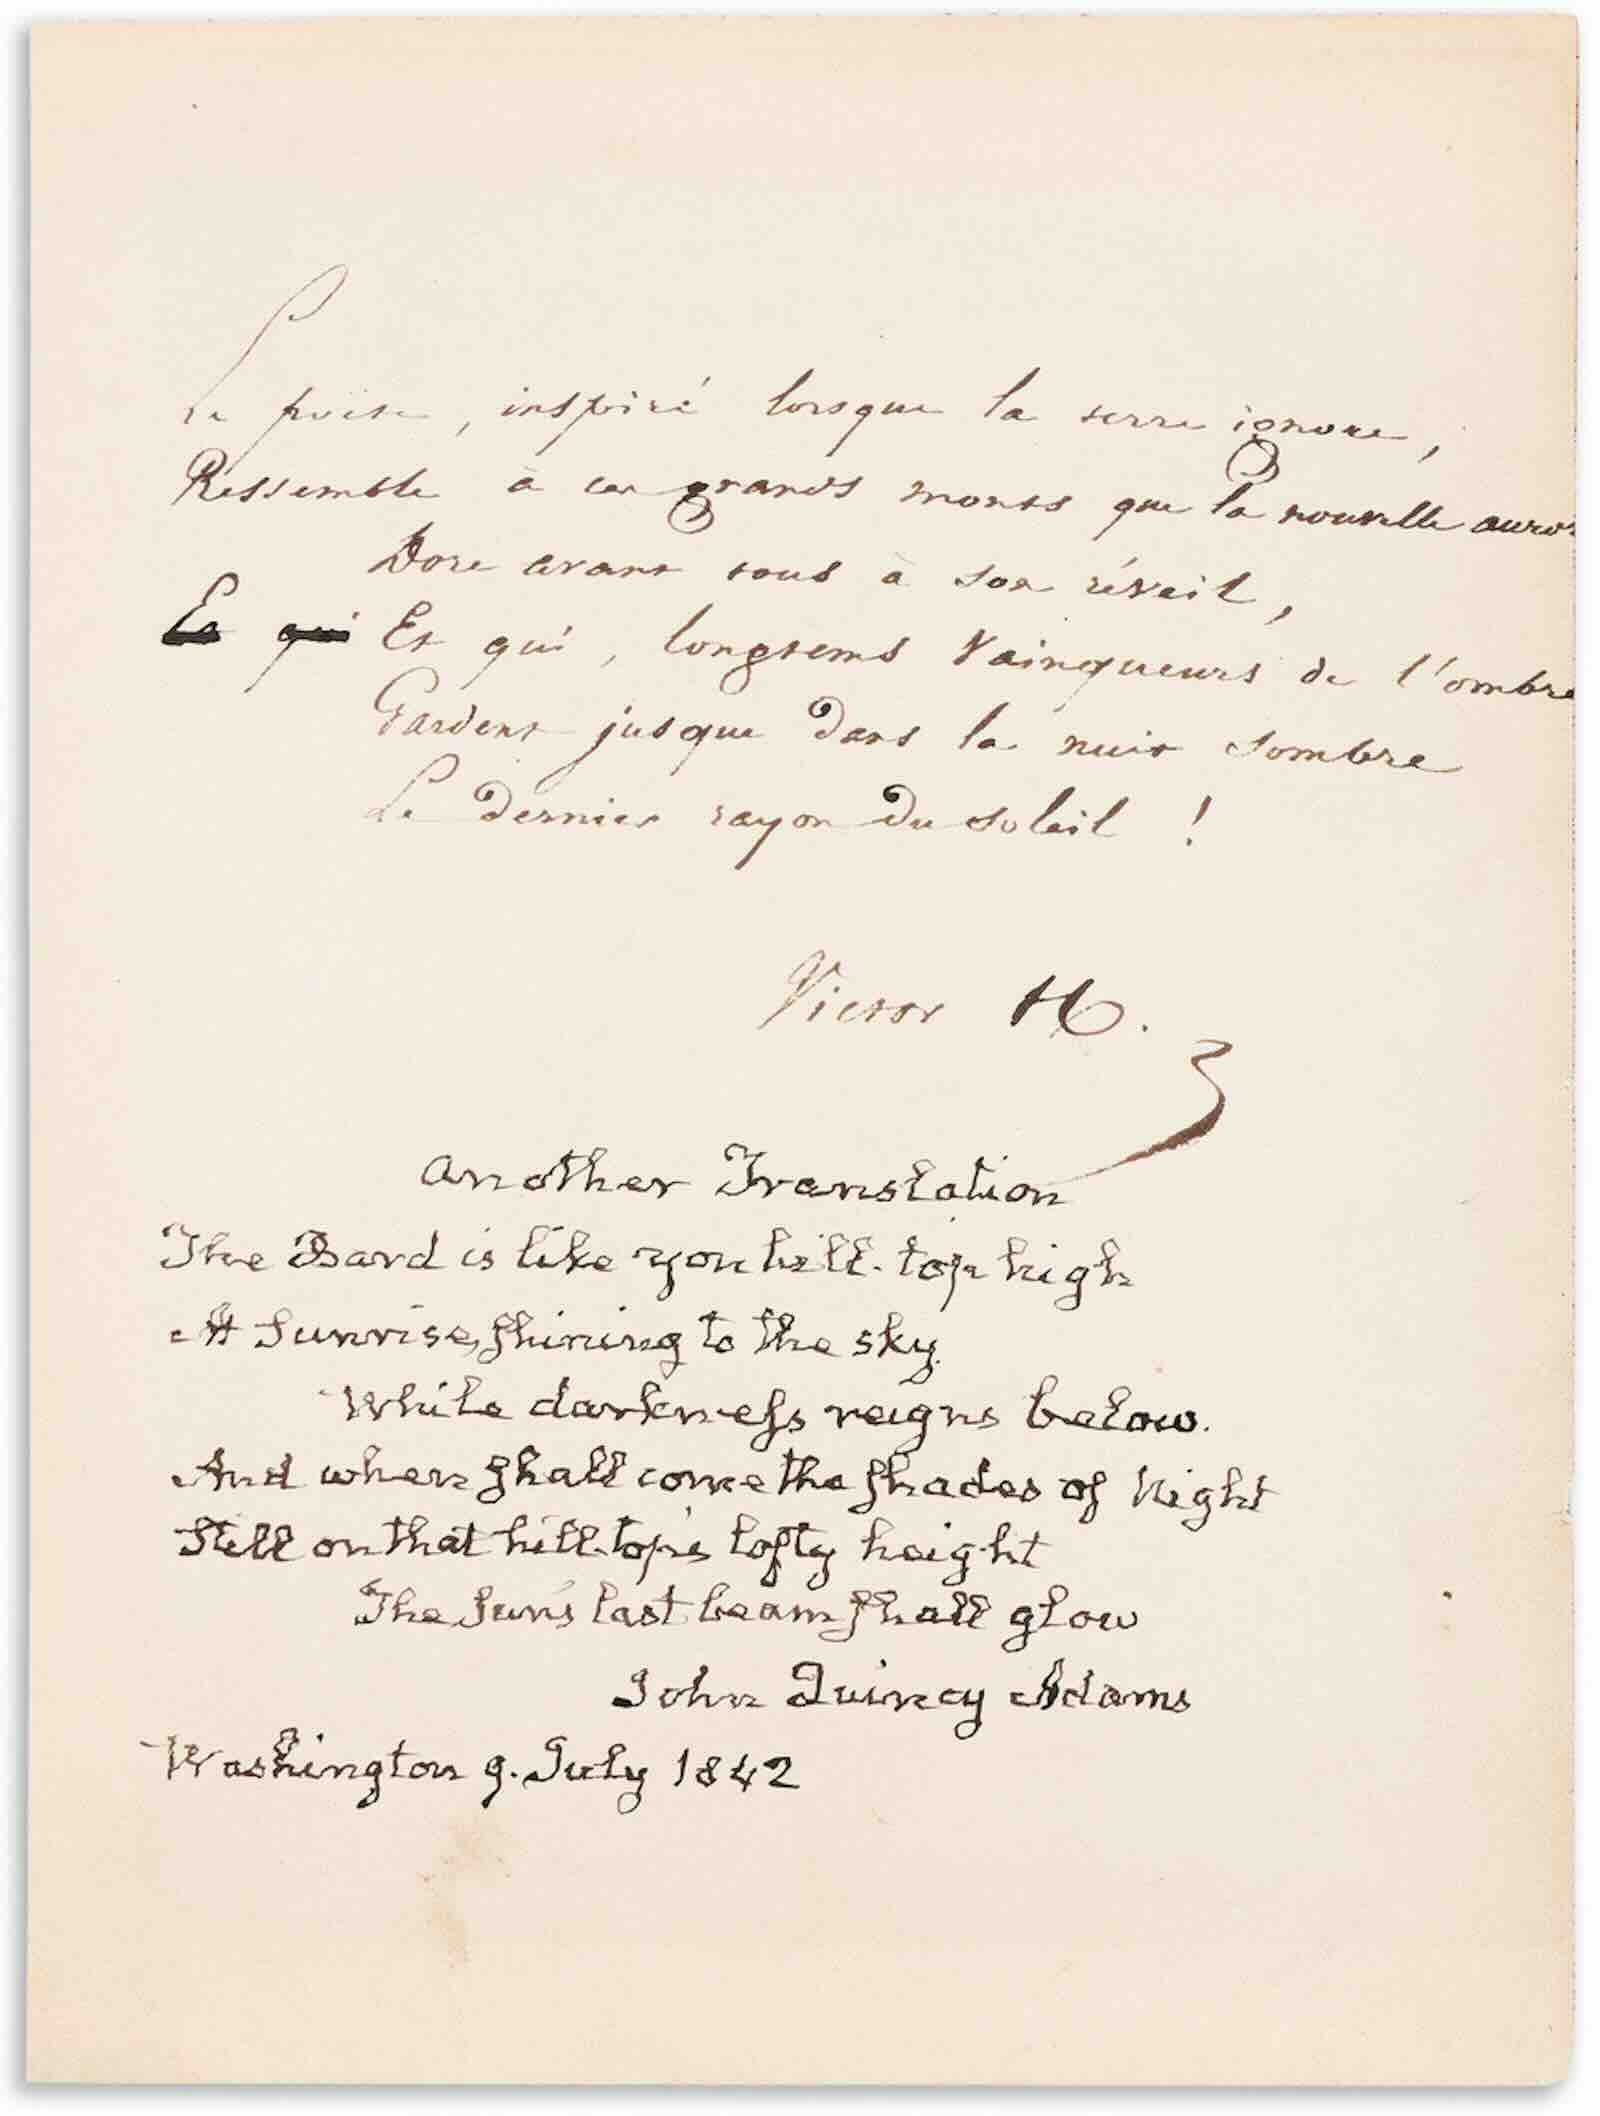 Le poète, inspiré lorsque la terre ignore,
Ressemble à ces grands monts que la nouvelle auro
Dore avant tous à son réveil,
Et qui Et qui, longtems vainqueurs de l'ombre
Gardent jusque dans la nuit sombre
Le dernier rayon du soleil !
Victor H.
Another Translation
The Bard is like yon hill-top high
At Sunrise, shining to the sky.
While darkness reigns below.
And when shall come the shades of Night
Still on that hill-top's lofty height
The Sun's last beam shall glow
John Quincy Adams
Washington 9. July 1842